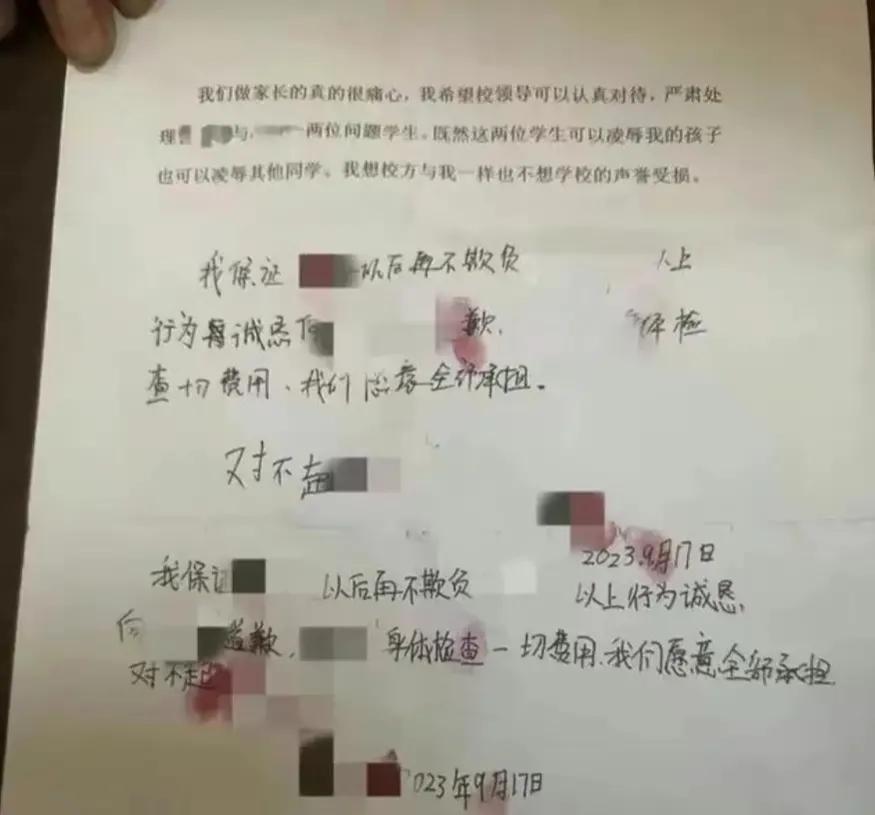 我们做家长的真的很痛心，我希望校领导可以认真对待，严肃处
理 与 两位问题学生。既然这两位学生可以凌辱我的孩子
也可以凌辱其他同学。我想校方与我一样也不想学校的声誉受损。
我保证 以后再不欺负 以上
行为 诚恳向 歉， 体检
查一切费用、我们愿意全部承担。
对不起
2023.9月17日
我保证 以后再不欺负 以上行为诚恳，
向 道歉， 身体检查一切费用、我们愿意全部承担
对不起
023年9月17日